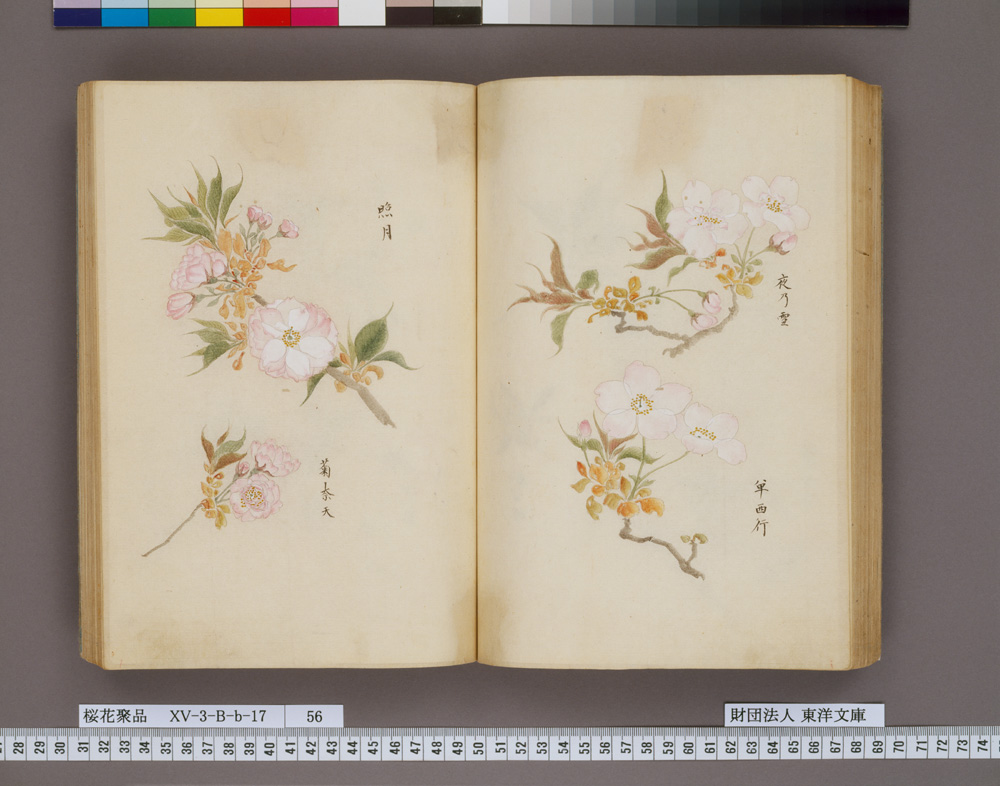 夜乃雪
単西行
照月
菊奈天
桜花聚品 XV-3-B-b-17 56
財団法人 東洋文庫
28 29 30 31 32 33 34 35 36 37 38 39 40 41 42 43 44 45 46 47 48 49 50 51 52 53 54 55 56 57 58 59 60 61 62 63 64 65 66 67 68 69 70 71 72 73 74